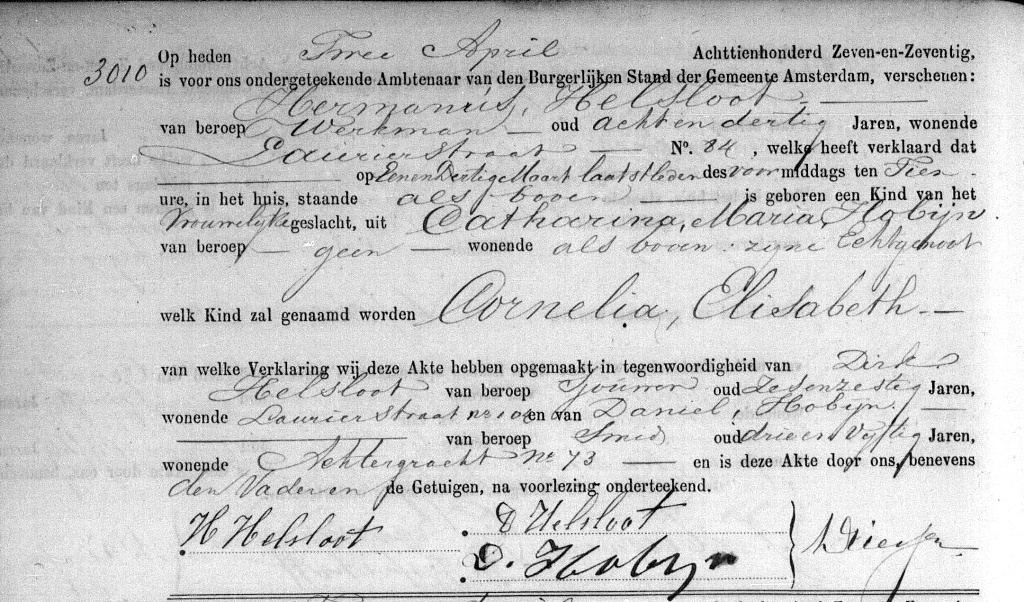 3010 Op heden Twee April Achttienhonderd Zeven-en-Zeventig,
is voor ons ondergeteekende Ambtenaar van den Burgerlijken Stand der Gemeente Amsterdam, verschenen:
Hermanus, Helsloot
van beroep Werkman oud achtendertig Jaren, wonende
Laurierstraat No. 84, welke heeft verklaard dat
op Eenendertig Maart laatstleden des voormiddags ten Tien
ure, in het huis, staande als boven is geboren een Kind van het
Vrouwelijke geslacht, uit Catharina, Maria, Hobijn
van beroep geen wonende als boven zijne Echtgenoot
welk Kind zal genaamd worden Cornelia, Elisabeth
van welke Verklaring wij deze Akte hebben opgemaakt in tegenwoordigheid van Dirk
Helsloot van beroep oud Zesenzestig Jaren,
wonende Laurierstraat no en van Daniel, Hobijn
van beroep Smid oud drieenvijftig Jaren,
wonende Achtergracht no 73 en is deze Akte door ons, benevens
den Vader en de Getuigen, na voorlezing onderteekend.
H Helsloot D Helsloot
D. Hobijn